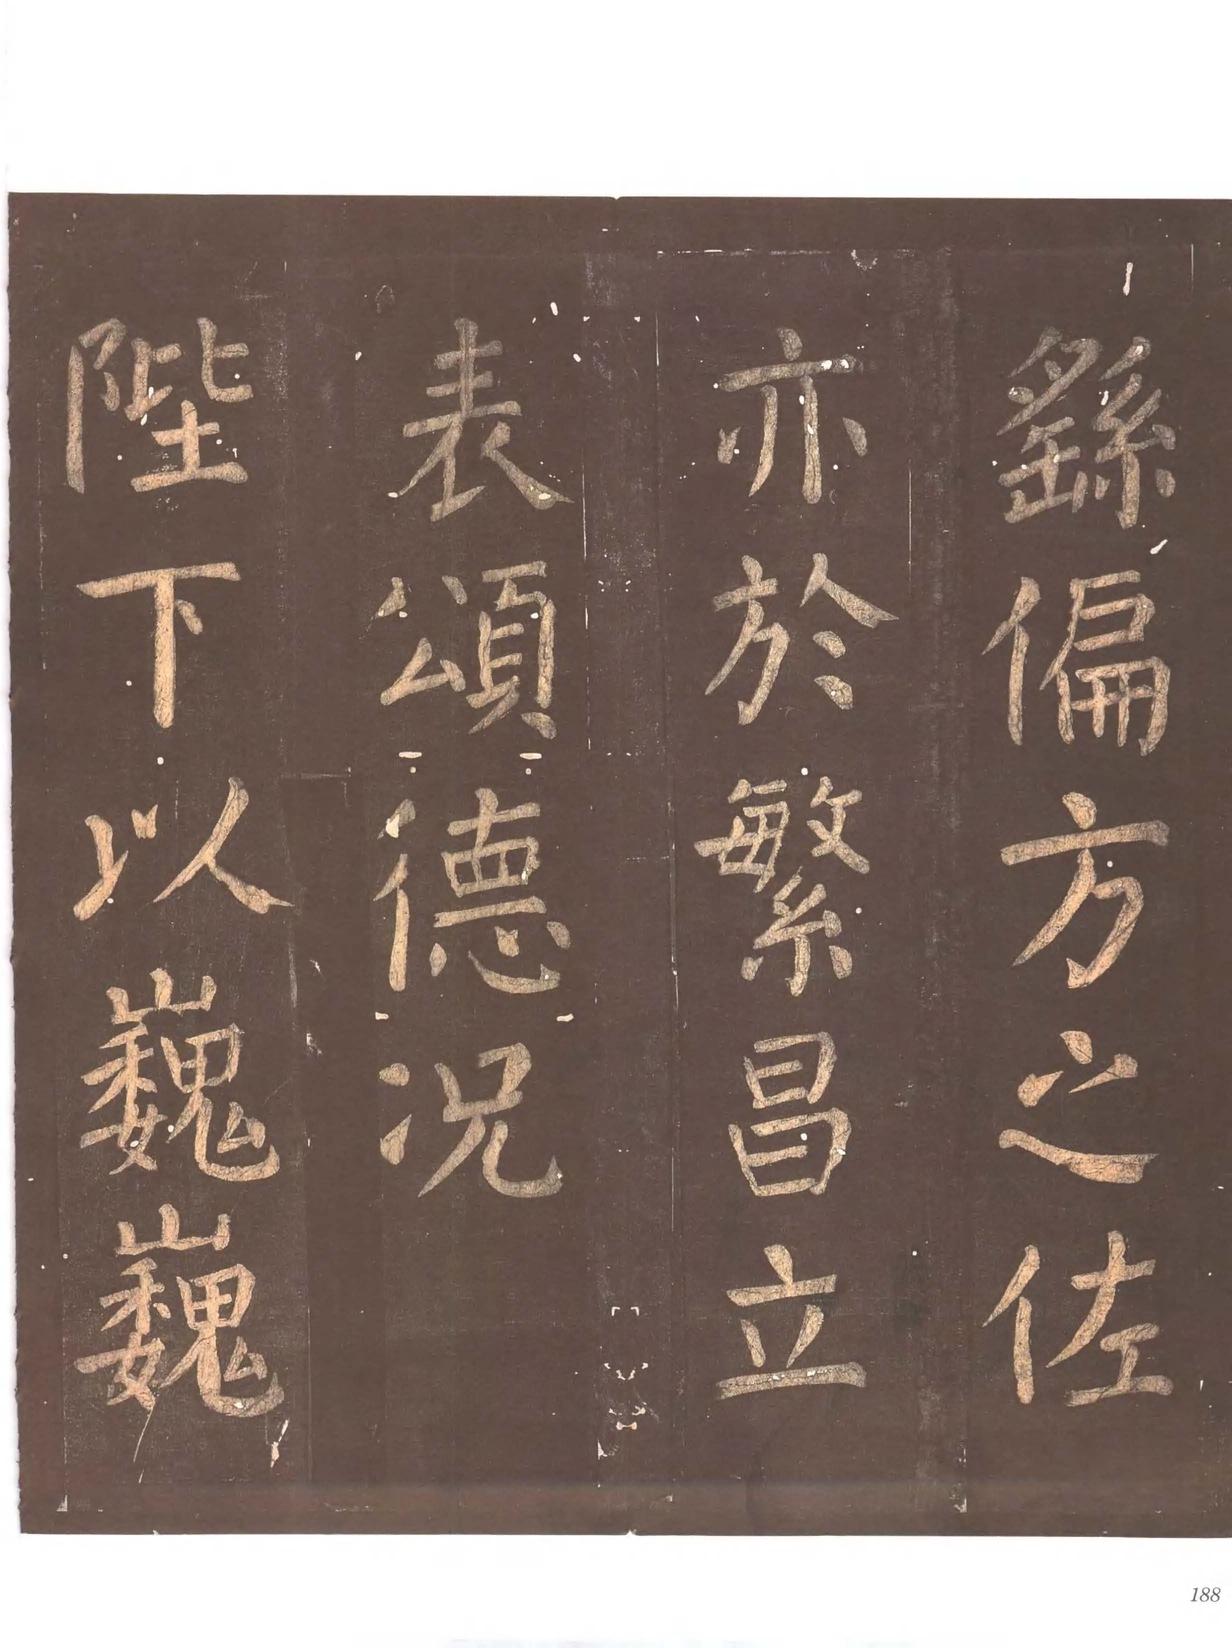 繇偏方之佐
亦於繁昌立
表頌德况
陛下以巍巍
188